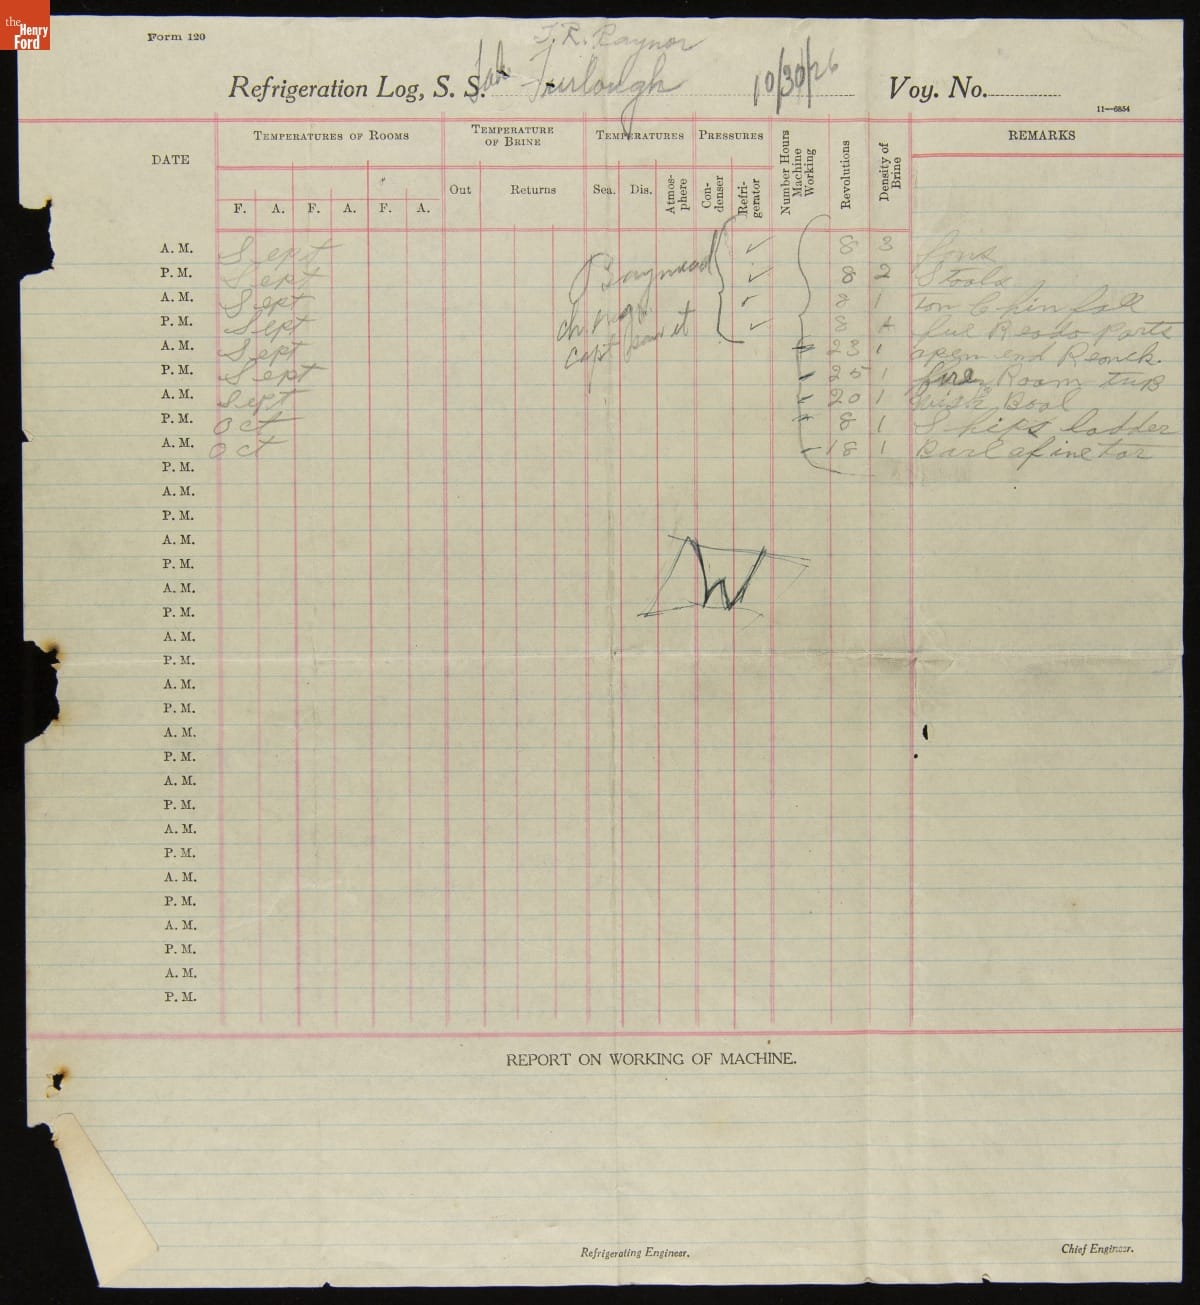 the Henry Ford
Form 120
J. R. Raynor
Refrigeration Log, S. S. Lake Furlough 10/30/26 Voy. No.
11—6854
DATE
TEMPERATURES OF ROOMS
TEMPERATURE OF BRINE
TEMPERATURES
PRESSURES
Number Hours Machine Working
Revolutions
Density of Brine
REMARKS
Out Returns Sea. Dis. Atmosphere Condenser Refrigerator
F. A. F. A. F. A.
A. M. Sept ✓ 8 3 fans
P. M. Sept ✓ 8 2 Stools
A. M. Sept ✓ 8 1 ton Chinfall
P. M. Sept ✓ 8 1 fur Reado Parts
A. M. Sept 23 1 open end Rench.
P. M. Sept 25 1 fire Room tub
A. M. Sept 20 1
P. M. Oct 8 1 Ships ladder
A. M. Oct 18 1
capt
P. M.
A. M.
P. M.
A. M.
P. M.
A. M.
P. M.
A. M.
P. M.
A. M.
P. M.
A. M.
P. M.
A. M.
P. M.
A. M.
P. M.
A. M.
P. M.
A. M.
P. M.
A. M.
P. M.
W
REPORT ON WORKING OF MACHINE.
Refrigerating Engineer.
Chief Engineer.